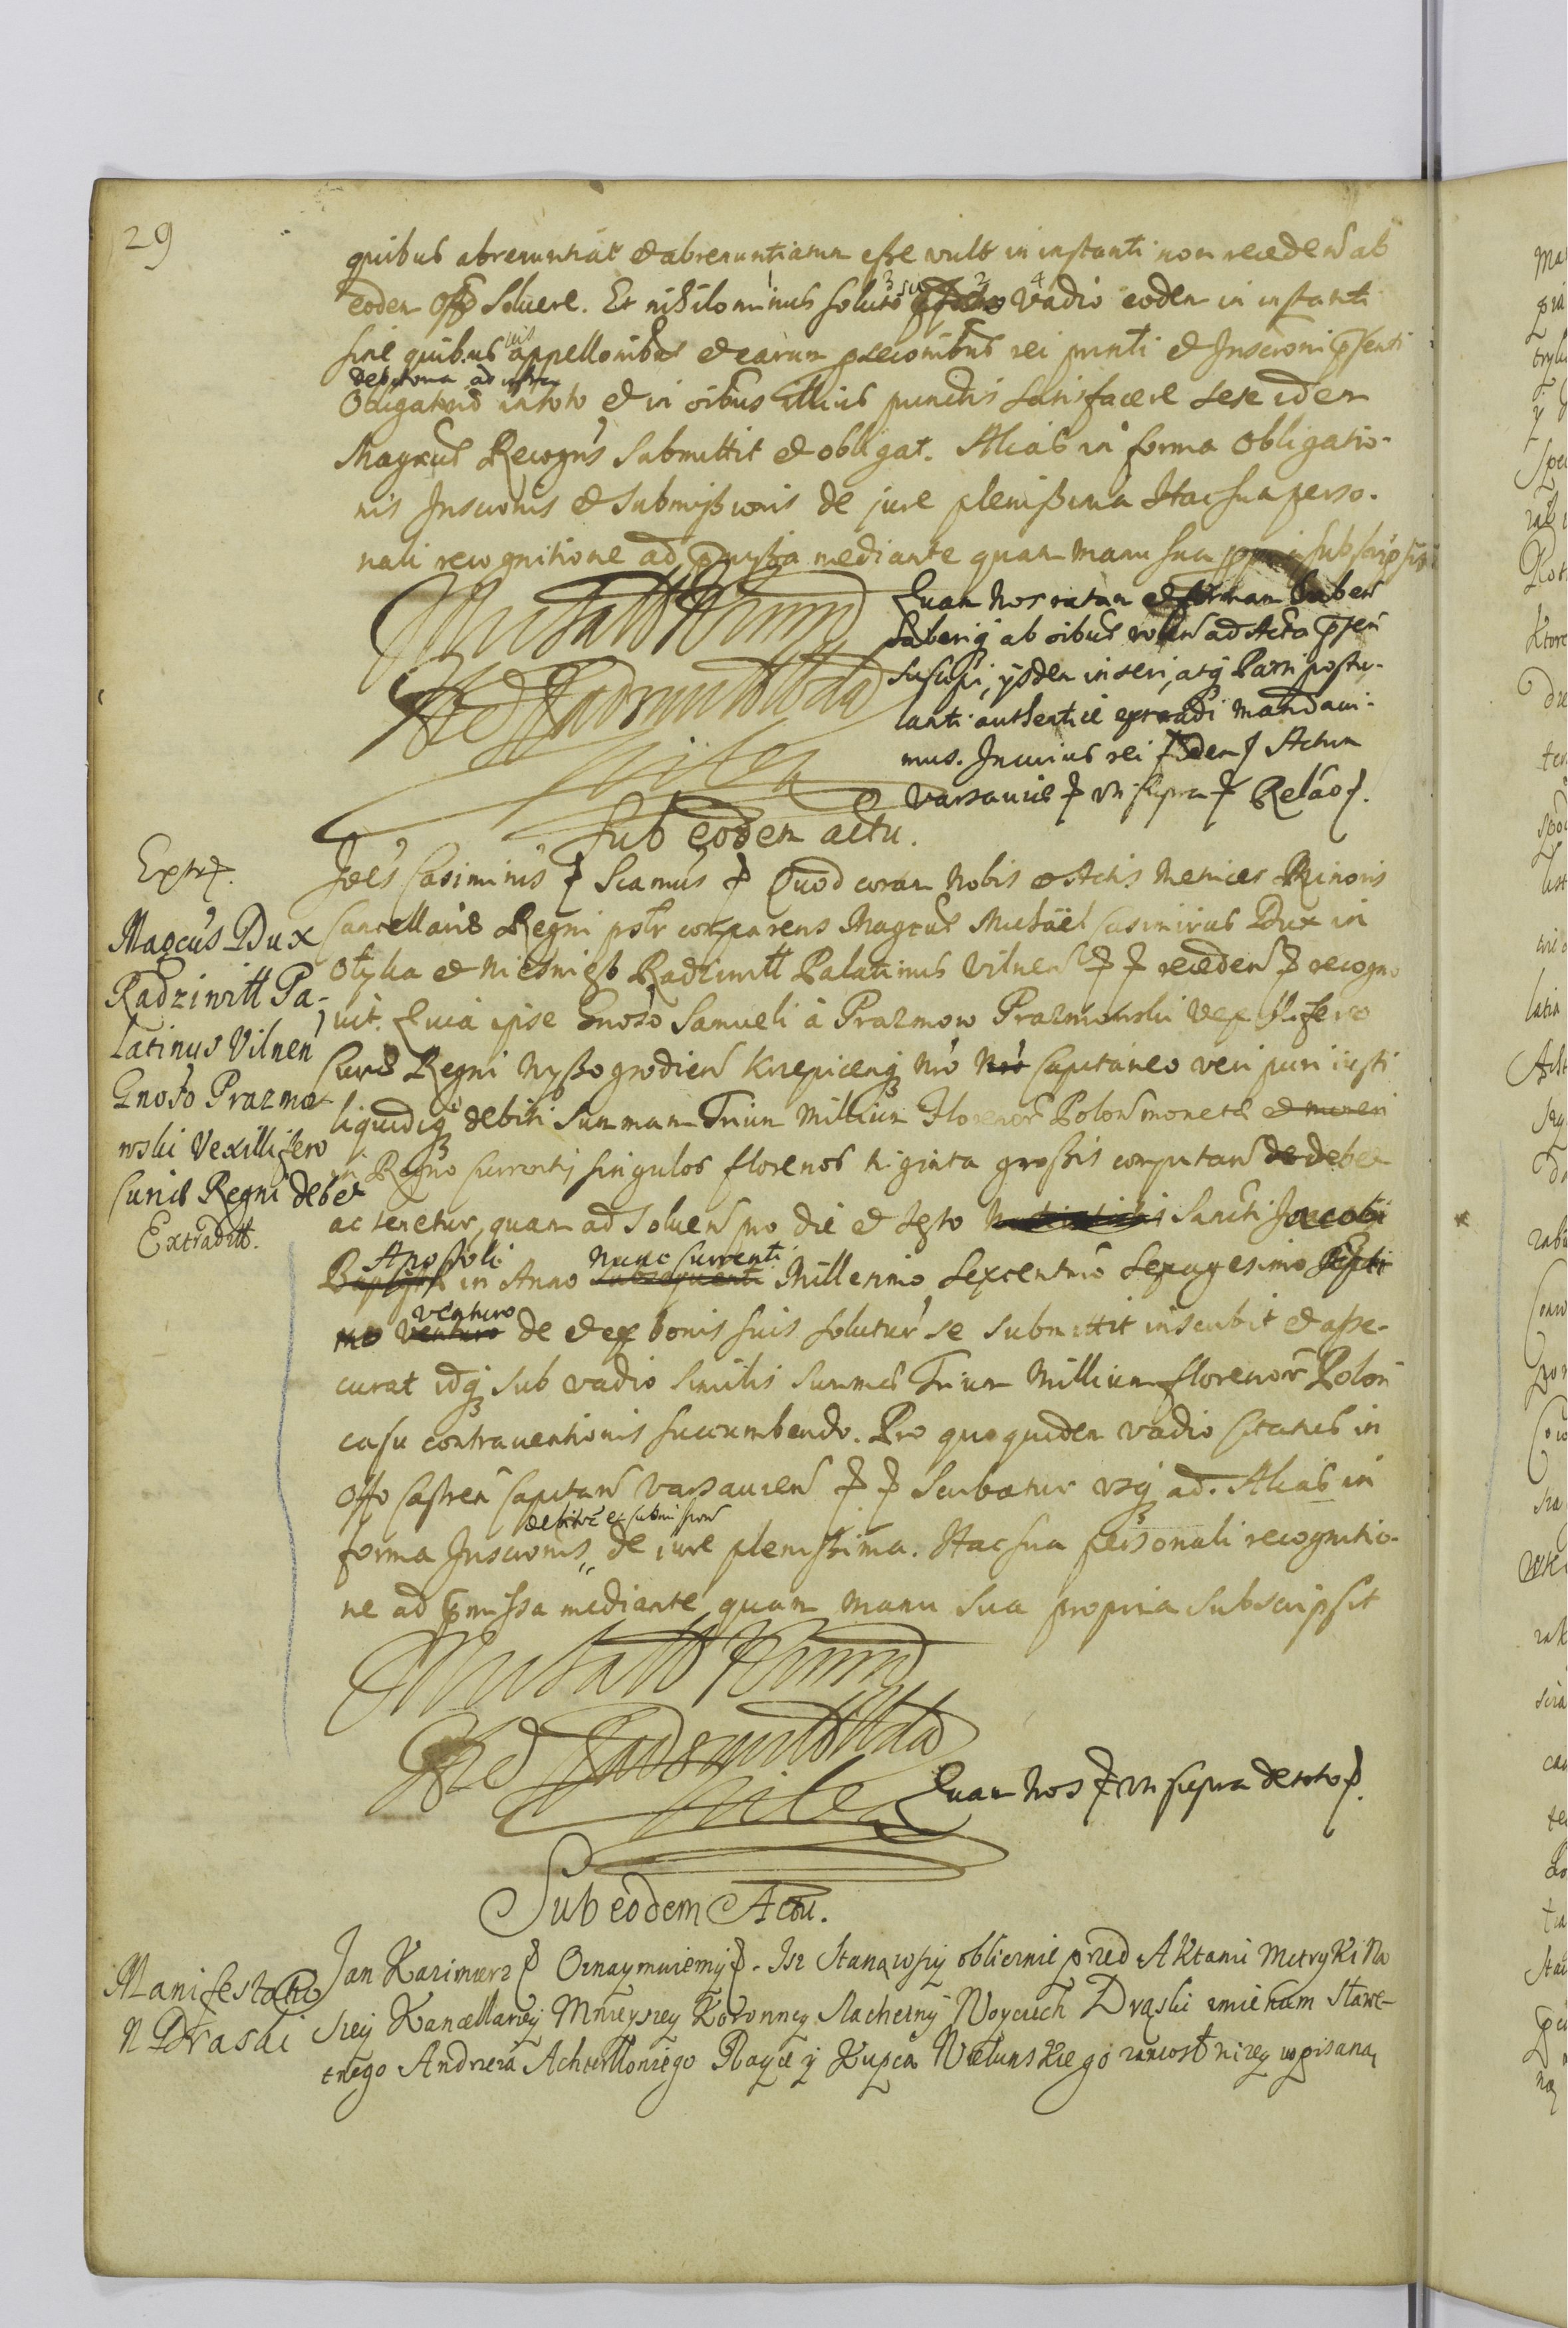 29
quibus abrenuntiat et abrenuntiatum esse vult in instanti non recedens ab
eodem Offo Soluere. Et nihilominus soluto vadio eodem in instanti
sine quibusuis appellonibus et earum psecõnibus rei prnti et Inscrõni pstenti
Obligatorio in toto et in oibus illius punctis satisfacere sese idem
Magcus Recogns submittit et obligat. Alias in forma Obligatio-
nis Inscrõnis et Submissionis de jure plenissima Hac sua perso-
nali recognitione ad pmissa mediante quam manu sua subscripsit
Quam Nos ratam et firmam haben
haberiq ab oibus volen ad Acta psen
suscipi, ysdem inseri, atq Parti postu-
lanti authentice extradi mandaui-
mus. In cuius rei fidem Actum
Varsauiæ ut supra Relão
Sub eodem actu.
Extr.
Magcus Dux
Radziwill Pa-
latinus Vilnen
Gnoso Prazmo-
wski Vexillifero
Curiæ Regni debet
Extradit.
Joes Casimirus Scamus Quod coram Nobis et Actis Metrices Minoris
Cancellariæ Regni pslr comparens Magcus Michäel Casimirus Dux in
Olyka et Nieswiesz Radziwill Palatinus Vilnen receden recogno
uit. Quia ipse Gnoso Samueli à Prazmow Prazmowski Vexillifero
Curiæ Regni Nyszogrodien Krzepicenq Nro Capitaneo veri puri iusti
liquidiq debiti summam Trium Millium Florenor Polon monetæ et numeri
in Regno Currentij singulos florenos triginta grossis computan debet
ac tenetur, quam ad soluen pro die et festo Sancti Jacobi
Apostoli in Anno nunc Currenti Millesimo Sexcentmo Sexagesimo
venturo de et ex bonis suis solutur se submittit inscribit et asse-
curat idq sub vadio similis summæ Trium Millium florenor Polon
casu contrauentionis succumbendo. Pro quo quidem vadio Citatus in
Offo Castren Capitan Varsauien Scribatur usq ad. Alias in
debitoræ et submission
forma Inscrõnis de iure plenissima. Hac sua personali recognitio-
ne ad pmissa mediante quam manu sua propria subscripsit
Quam Nos ut supra de toto
Sub eodem Actu.
Manifestatio
N Draski
Jan Kazimierz Oznaymuiemy. Isz Stanąwszy oblicznie przed Aktami Metryki Na
szey Kancellariey Mnieyszey Koronney Slachetny Woyciech Drąski imieniem Sławe-
tnego Andrzeia Rayce y Kupca Wielunskiego nizey wpisaną